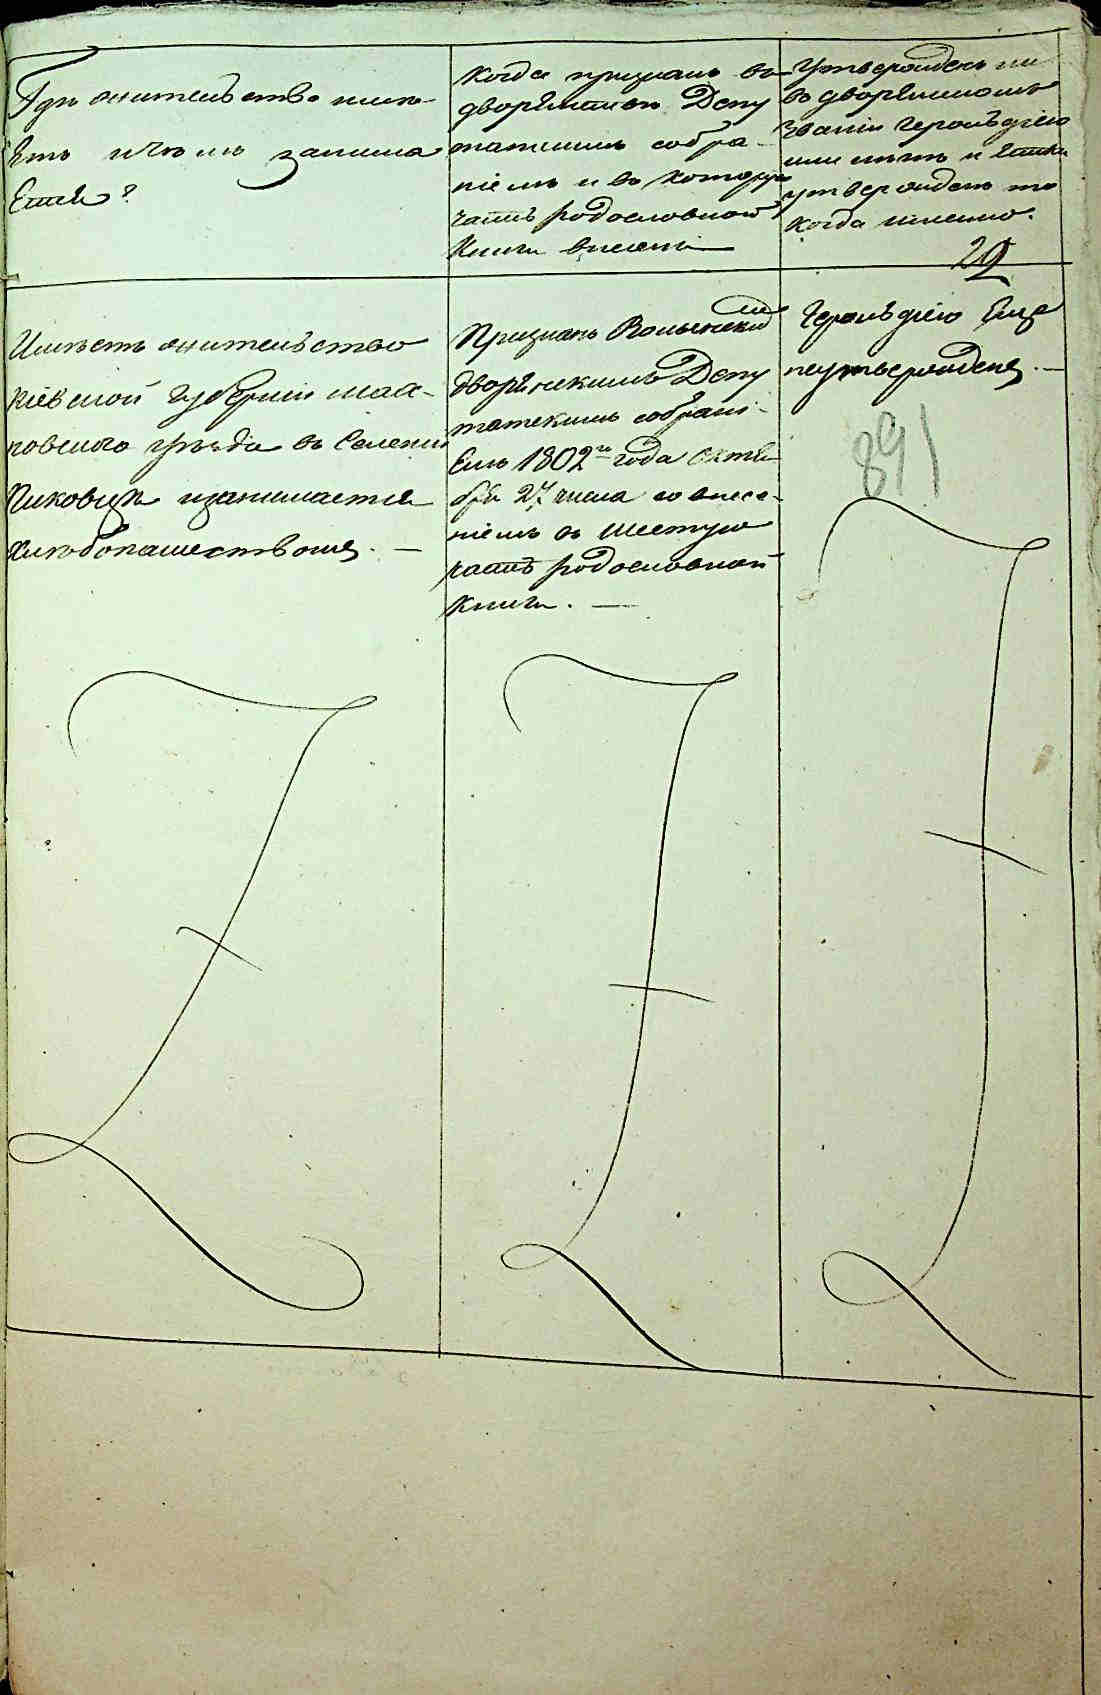 Гдѣ жительство имѣ-
етъ и чѣмъ занима
ется?
Когда признанъ въ
дворянствѣ Депу
татскимъ собра-
ніемъ и въ которую
часть родословной
книги внесенъ
Утвержденъ ли
въ дворянскомъ
званіи Герольдіею
или нѣтъ и ежели
утвержденъ то
когда именно.
29
Имѣетъ жительство
Кіевской губерніи
уѣзда въ селеніи
и занимается
хлѣбопашествомъ. —
Признанъ Волынскимъ
дворянскимъ Депу
татскимъ собрані-
емъ 1802го года октя
бря 27 числа со внесе-
ніемъ въ шестую
часть родословной
книги. —
Герольдіею еще
неутвержденъ. —
891